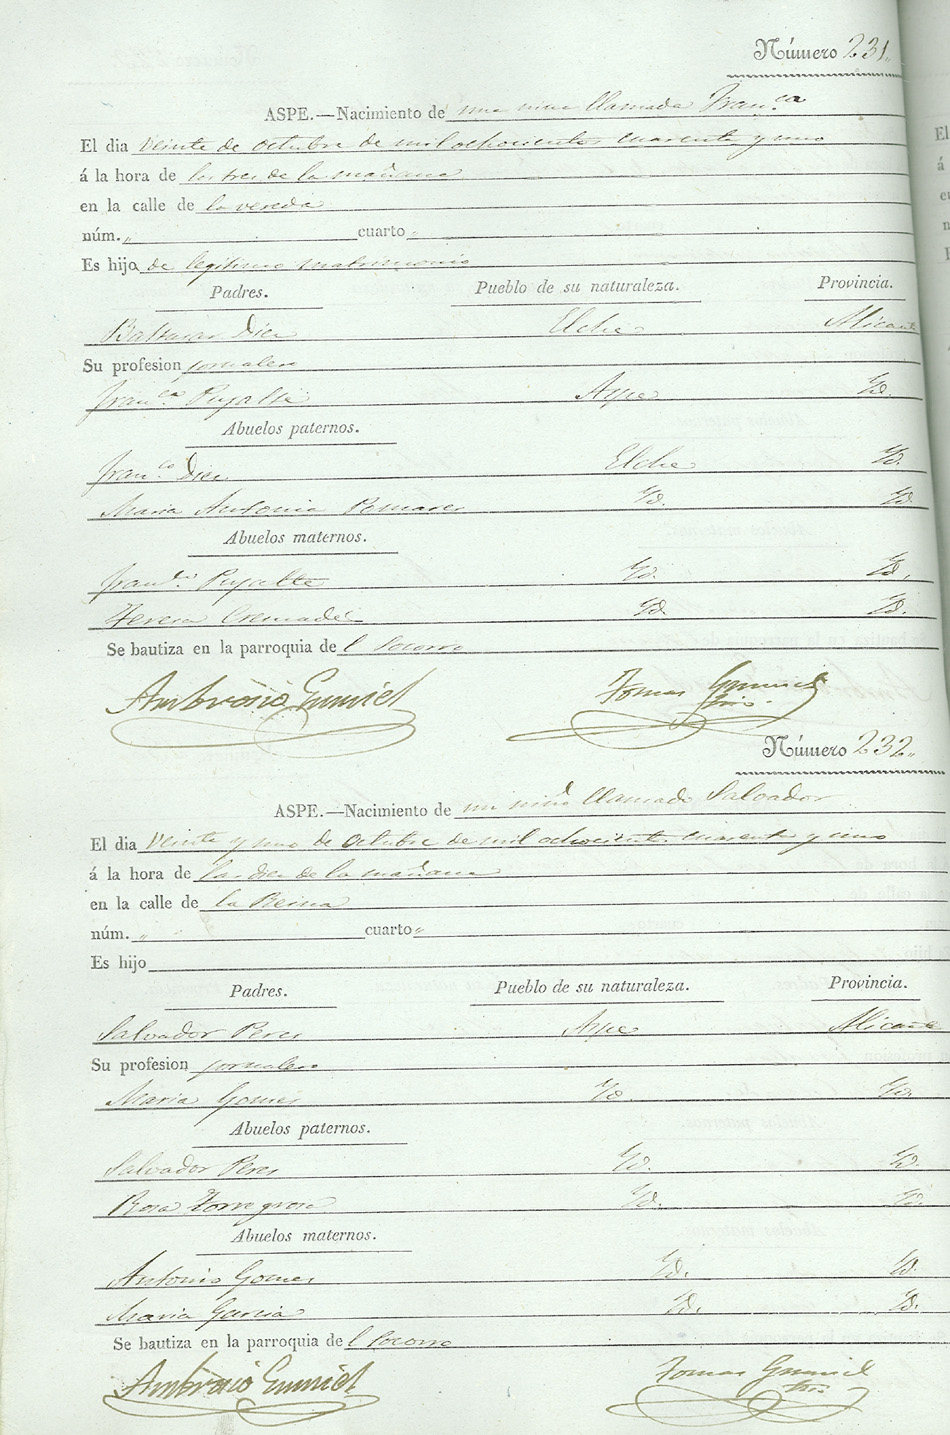 Número 231.
ASPE.—Nacimiento de una niña llamada Fran.ca
El dia veinte de octubre de mil ochocientos cuarenta y uno
á la hora de las tres de la mañana
en la calle de la vereda
núm. „ cuarto „
Es hijo de legitimo matrimonio
Padres. Pueblo de su naturaleza. Provincia.
Baltasar Dies Elche Alicante
Su profesion jornalero
Fran.ca Pujalte Aspe Yd.
Abuelos paternos.
Fran.co Dies Elche Yd.
Maria Antonia Pomares Yd. Yd.
Abuelos maternos.
Fran.co Pujalte Yd. Yd.
Teresa Cremades Yd. Yd.
Se bautiza en la parroquia del Socorro
Ambrosio Tomas
Número 232.
ASPE.—Nacimiento de un niño llamado Salvador
El dia Veinte y uno de octubre de mil ochocientos cuarenta y uno
á la hora de las dies de la mañana
en la calle de la Reina
núm. „ „ cuarto „
Es hijo
Padres. Pueblo de su naturaleza. Provincia.
Salvador Peres Aspe Alicante
Su profesion jornalero
Maria Gomes Yd. Yd.
Abuelos paternos.
Salvador Peres Yd. Yd.
Rosa Torregrosa Yd. Yd.
Abuelos maternos.
Antonio Gomes Yd. Yd.
Maria Garcia Yd. Yd.
Se bautiza en la parroquia del Socorro
Ambrosio Tomas